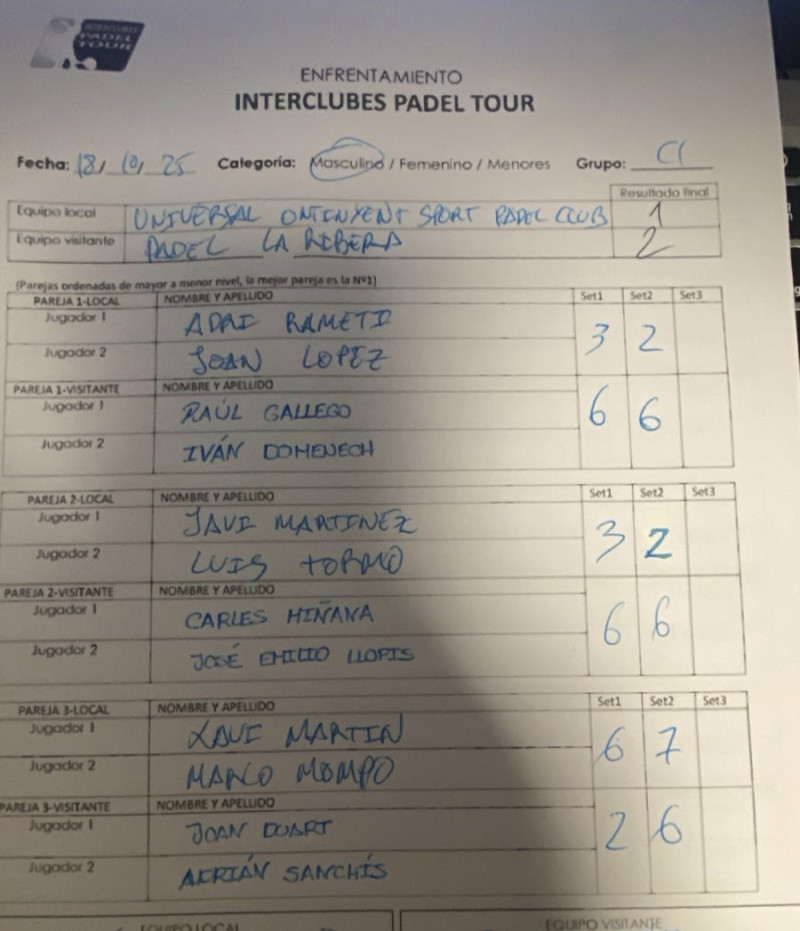 INTERCLUBES
PADEL
TOUR
ENFRENTAMIENTO
INTERCLUBES PADEL TOUR
Fecha: 18, 10, 25 Categoría: Masculino / Femenino / Menores Grupo: C1
Resultado final
Equipo local UNIVERSAL ONTINYENT SPORT PADEL CLUB 1
Equipo visitante PADEL LA RIBERA 2
(Parejas ordenadas de mayor a menor nivel, la mejor pareja es la Nº1)
PAREJA 1-LOCAL NOMBRE Y APELLIDO Set1 Set2 Set3
Jugador 1 ADRI RAMETD 3 2
Jugador 2 JOAN LOPEZ
PAREJA 1-VISITANTE NOMBRE Y APELLIDO
Jugador 1 RAÚL GALLEGO 6 6
Jugador 2 IVÁN DOMENECH
PAREJA 2-LOCAL NOMBRE Y APELLIDO Set1 Set2 Set3
Jugador 1 JAVI MARTINEZ 3 2
Jugador 2 LUIS TORMO
PAREJA 2-VISITANTE NOMBRE Y APELLIDO
Jugador 1 CARLES MIÑANA 6 6
Jugador 2 JOSÉ EMILIO LLOPIS
PAREJA 3-LOCAL NOMBRE Y APELLIDO Set1 Set2 Set3
Jugador 1 XAVI MARTIN 6 7
Jugador 2 MARCO MOMPO
PAREJA 3-VISITANTE NOMBRE Y APELLIDO
Jugador 1 JOAN DUART 2 6
Jugador 2 ADRIÁN SANCHÍS
EQUIPO LOCAL EQUIPO VISITANTE